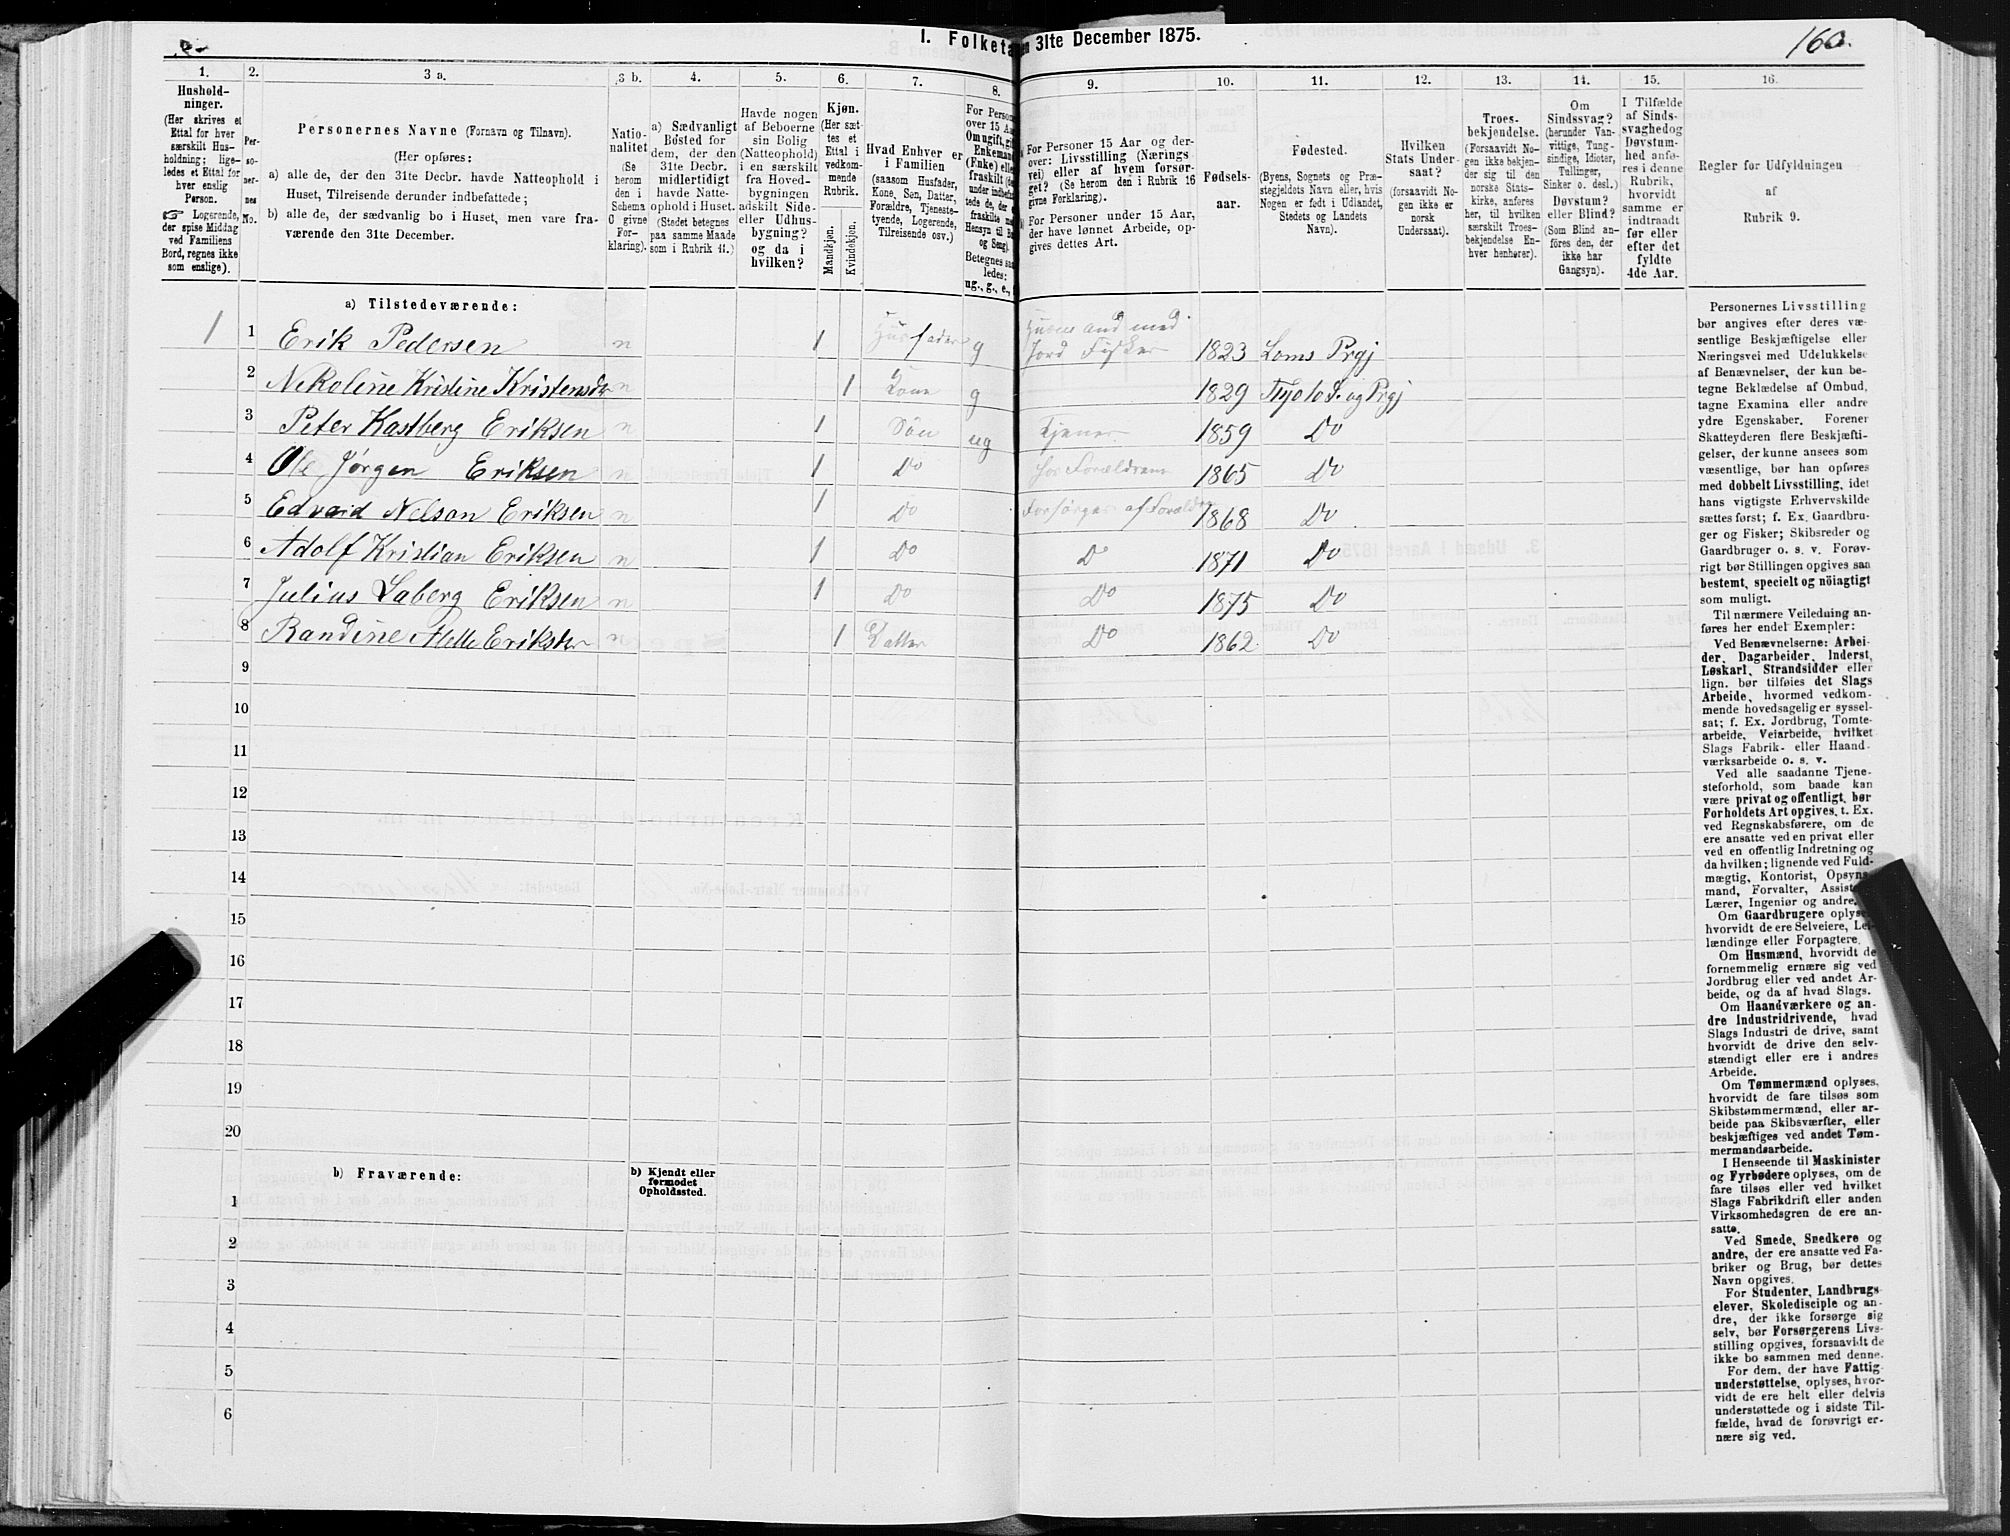 I. Folketæ
en 31te December 1875.
160.
1.
2.
3 a.
3 b.
4.
5.
6.
7.
8.
9.
10.
11.
12.
13.
14.
15.
16.
Hushold-
ninger.
(Her skrives et
Ettal for hver
særskilt Hus-
holdning; lige-
ledes et Ettal for
hver enslig
Person.
☞ Logerende,
der spise Middag
ved Familiens
Bord, regnes ikke
som enslige).
Per-
so-
ner-
nes
No.
Personernes Navne (Fornavn og Tilnavn).
(Her opføres:
a) alle de, der den 31te Decbr. havde Natteophold i
Huset, Tilreisende derunder indbefattede;
b) alle de, der sædvanlig bo i Huset, men vare fra-
værende den 31te December.
Natio-
nalitet
(Se
herom
den i
Schema
C givne
For-
klaring).
a) Sædvanligt
Bosted for
dem, der den
31te Decbr.
midlertidigt
havde Natte-
ophold i Huset.
(Stedet betegnes
paa samme Maade
som i Rubrik 11.)
Havde nogen
af Beboerne
sin Bolig
(Natteophold)
i en særskilt
fra Hoved-
bygningen
adskilt Side-
eller Udhus-
bygning?
og da i
hvilken?
Kjøn.
(Her sæt-
tes et
Ettal i
vedkom-
mende
Rubrik.
Mandkjøn.
Kvindekjøn.
Hvad Enhver er
i Familien
(saasom Husfader,
Kone, Søn, Datter,
Forældre, Tjeneste-
tyende, Logerende,
Tilreisende osv.)
For Person
over 15 Aa
Om ugift, gi
Enkemand
(Enke) elle
fraskilt (de
under indbefat-
tede de, der e
fraskilte me
Hensyn til Bo
og Seng).
Betegnes saa
ledes:
ug., g., e., f
For Personer 15 Aar og der-
over: Livsstilling (Nærings
vei) eller af hvem forsør-
get? (Se herom den i Rubrik 16
givne Forklaring).
For Personer under 15 Aar,
der have lønnet Arbeide, op-
gives dettes Art.
Fødsels-
aar.
Fødested.
(Byens, Sognets og Præ-
stegjeldets Navn eller, hvis
Nogen er født i Udlandet,
Stedets og Landets
Navn).
Hvilken
Stats Under-
saat?
(forsaavidt No-
gen ikke er
norsk
Undersaat).
Troes-
bekjendelse.
(Forsaavidt No-
gen ikke bekjen-
der sig til den
norske Stats-
kirke, anføres
her, til hvilken
særskilt Troes-
bekjendelse En-
hver henhører).
Om
Sindssvag?
(herunder Van-
vittige, Tung-
sindige, Idioter,
Tullinger,
Sinker o. desl.)
Døvstum?
eller Blind?
(Som Blind an-
føres den, der
ikke har
Gangsyn).
I Tilfælde
af Sinds-
svaghedog
Døvstum-
hed anfø-
res i denne
Rubrik,
hvorvidt
samme er
indtraadt
før eller
efter det
fyldte
4de Aar.
Regler for Udfyldningen
af
Rubrik 9.
a) Tilstedeværende:
1 1 Erik Pedersen n 1 Husfader g Husmand med Jord Fisker 1823 Loms Prgj
2 Nikoline Kristine Kristensdr n 1 Kone g 1829 S. og Prgj
3 Peter Kastberg Eriksen n 1 Søn ug Tjener 1859 Do
4 Ole Jørgen Eriksen 1 Do hos Forældrene 1865 Do
5 Edvard Nelson Eriksen n 1 Do Forsørges af Forældre 1868 Do
6 Adolf Kristian Eriksen n 1 Do D 1871 Do
7 Julius Laberg Eriksen n 1 Do Do 1875 Do
8 Randine Eriksdr n 1 Datter Do 1862 Do
9
10
11
12
13
14
15
16
17
18
19
20
b) Fraværende:
b) Kjendt eller
formodet
Opholdssted.
1
2
3
4
5
6
Personernes Livsstilling
bør angives efter deres væ-
sentlige Beskjæftigelse eller
Næringsvei med Udelukkelse
af Benævnelser, der kun be-
tegne Beklædelse af Ombud,
tagne Examina eller andre
ydre Egenskaber. Forener
Skatteyderen flere Beskjæfti-
gelser, der kunne ansees som
væsentlige, bør han opføres
med dobbelt Livsstilling, idet
hans vigtigste Erhvervskilde
sættes først; f. Ex. Gaardbru-
ger og Fisker; Skibsreder og
Gaardbruger o. s. v. Forøv-
rigt bør Stillingen opgives saa
bestemt, specielt og nöiagtigt
som muligt.
Til nærmere Veiledning an-
føres her endel Exempler:
Ved Benævnelserne: Arbei-
der, Dagarbeider, Inderst,
Løskarl, Strandsidder eller
lign. bør tilføies det Slags
Arbeide, hvormed vedkom-
mende hovedsagelig er syssel-
sat; f. Ex. Jordbrug, Tomte-
arbeide, Veiarbeide, hvilket
Slags Fabrik- eller Haand-
værksarbeide o. s. v.
Ved alle saadanne Tjene-
steforhold, som baade kan
være privat og offentligt, bør
Forholdets Art opgives, t. Ex.
ved Regnskabsførere, om de
ere ansatte ved en privat eller
ved en offentlig Indretning og
da hvilken; lignende ved Fuld-
mægtig, Kontorist, Opsyns-
mand, Forvalter, Assiste
Lærer, Ingeniør og andre.
Om Gaardbrugere oplyse
hvorvidt de ere Selveiere, Lei-
lændinge eller Forpagtere.
Om Husmænd, hvorvidt de
fornemmelig ernære sig ved
Jordbrug eller ved andet Ar-
beide, og da af hvad Slags.
Om Haandværkere og an-
dre Industridrivende, hvad
Slags Industri de drive, samt
hvorvidt de drive den selv-
stændigt eller ere i andres
Arbeide.
Om Tømmermænd oplyses,
hvorvidt de fare tilsøs som
Skibstømmermænd, eller ar-
beide paa Skibsværfter, eller
beskjæftiges ved andet Tøm-
mermandsarbeide.
I Henseende til Maskinister
og Fyrbødere oplyses, om de
fare tilsøs eller ved hvilket
Slags Fabrikdrift eller anden
Virksomhedsgren de ere an-
satte.
Ved Smede, Snedkere og
andre, der ere ansatte ved Fa-
briker og Brug, bør dettes
Navn opgives.
For Studenter, Landbrugs-
elever, Skoledisciple og an-
dre, der ikke forsørge sig
selv, bør Forsørgerens Livs-
stilling opgives, forsaavidt de
ikke bo sammen med denne.
For dem, der have Fattig-
understøttelse, oplyses, hvor-
vidt de ere helt eller delvis
understøttede og i sidste Til-
fælde, hvad de forøvrigt er-
nære sig ved.